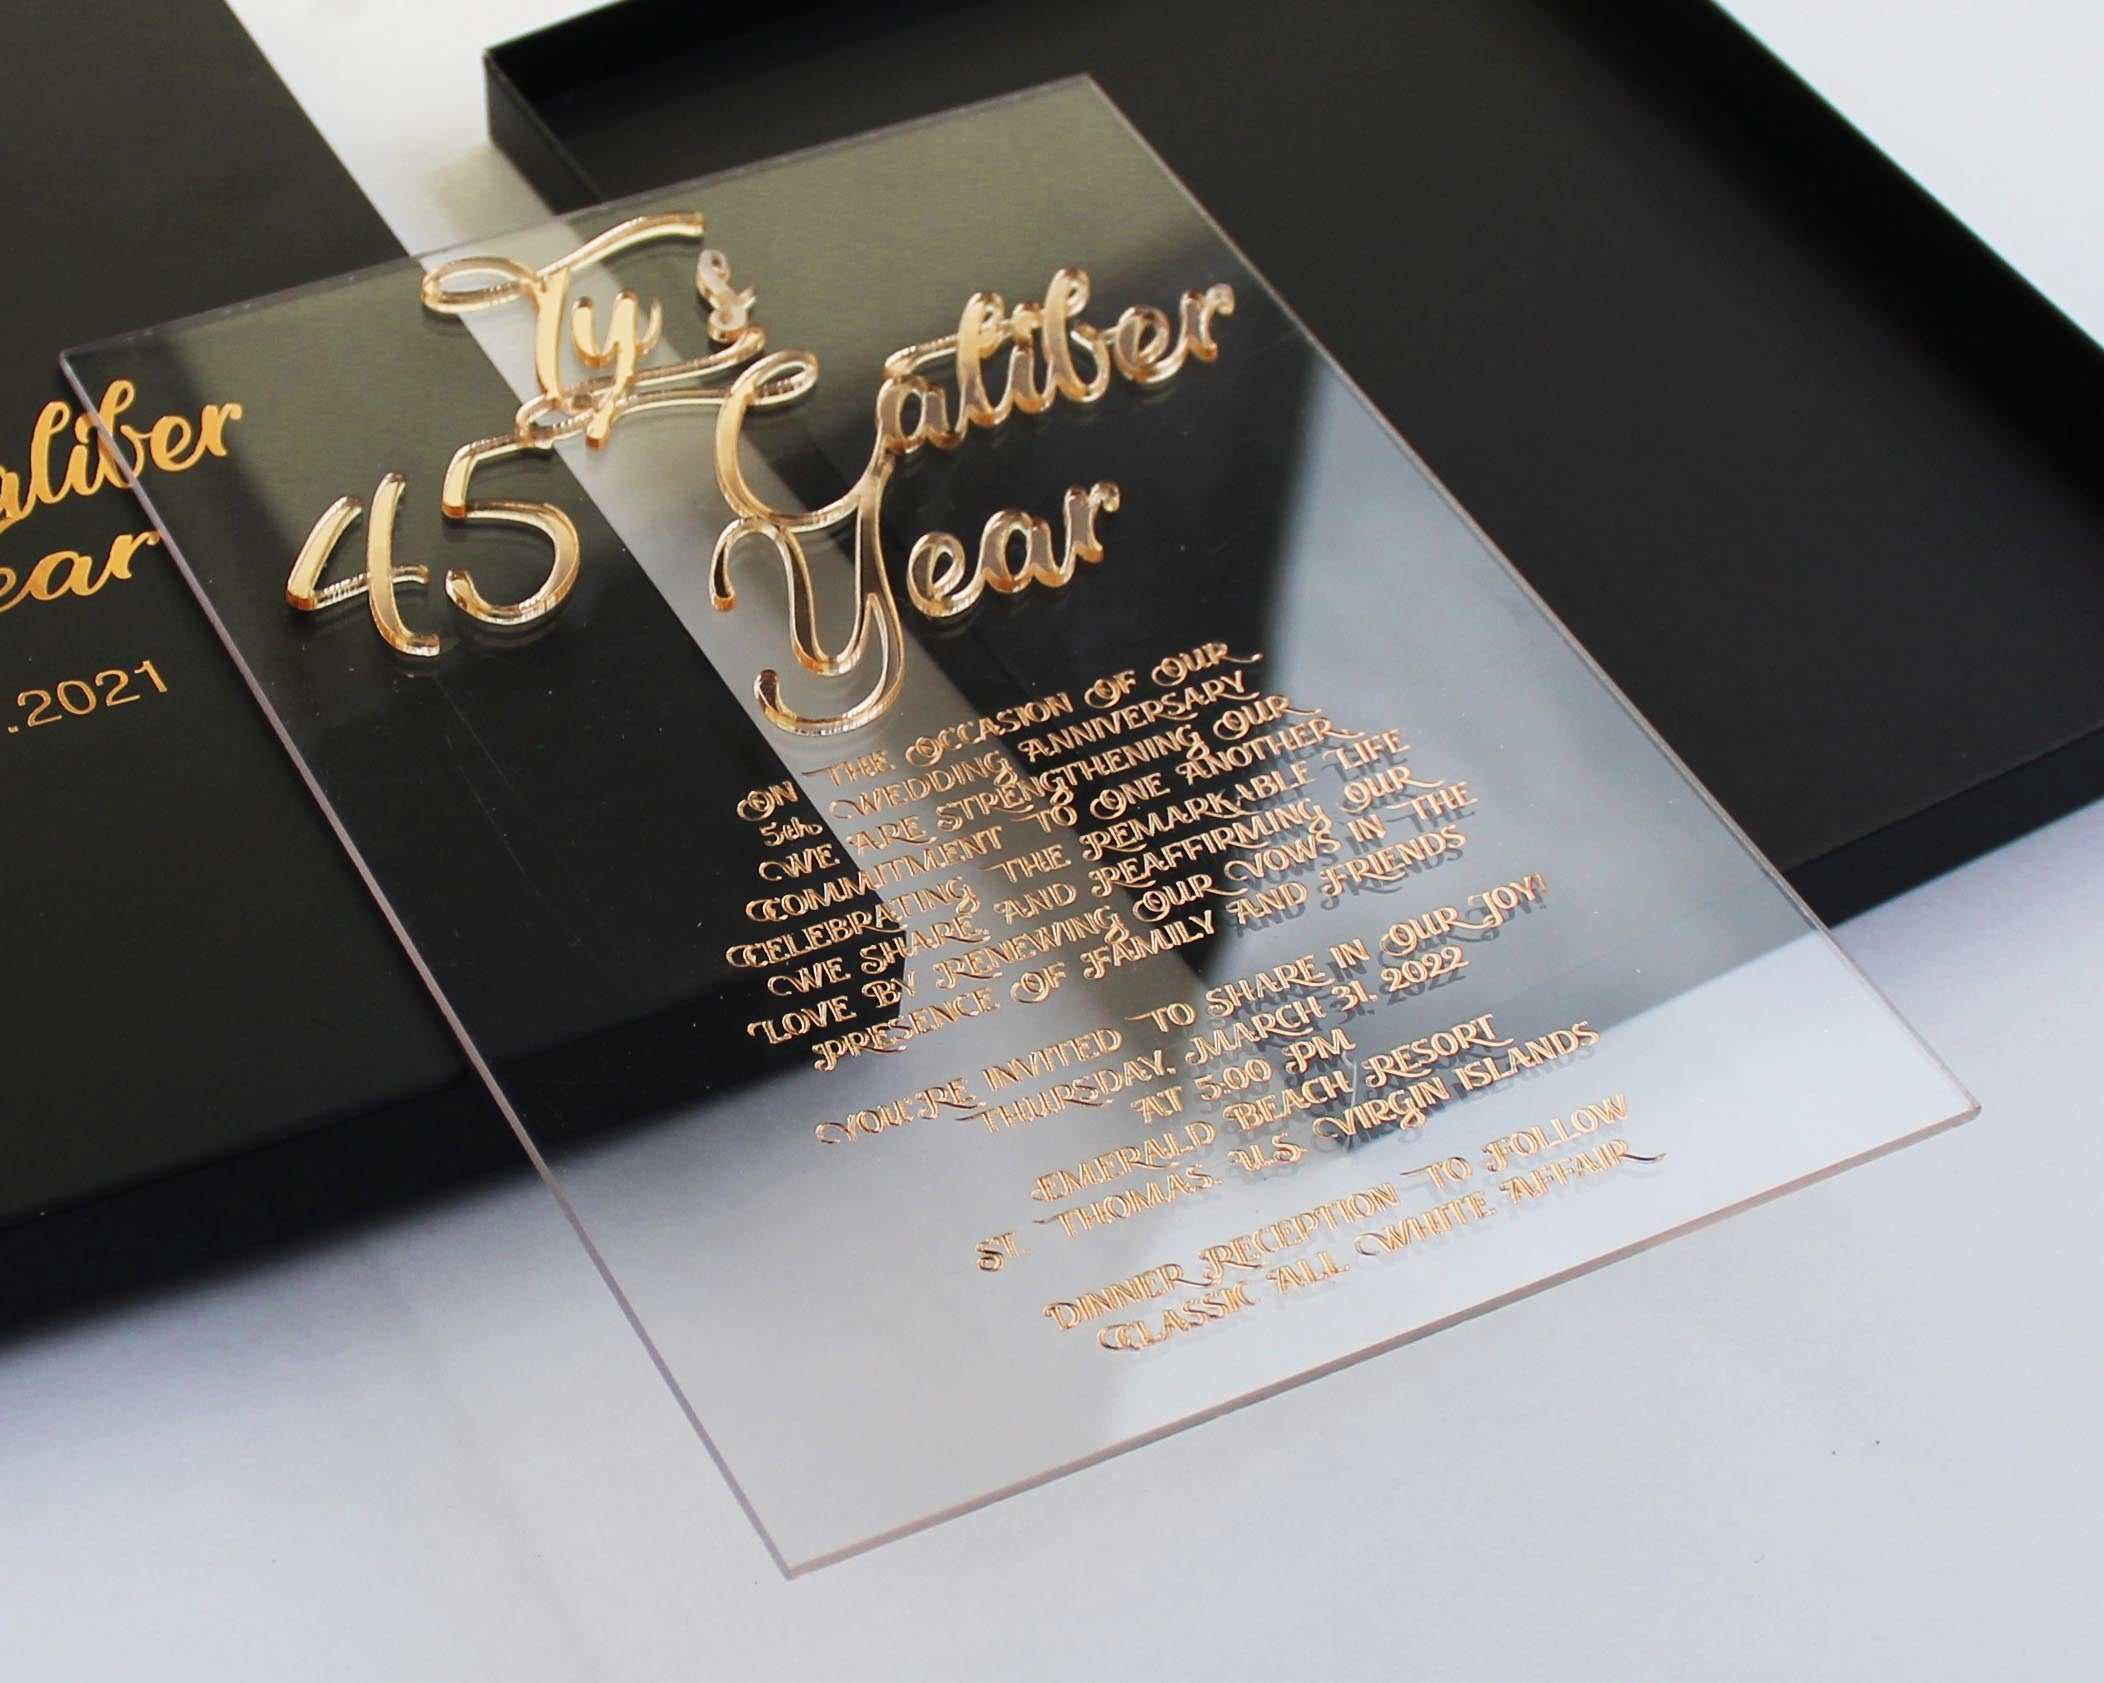 Ty's
45 Caliber
Year
On The Occasion Of Our
5th Wedding Anniversary
We Are Strengthening Our
Commitment To One Another,
Celebrating The Remarkable Life
We Share, And Reaffirming Our
Love By Renewing Our Vows In The
Presence Of Family And Friends
You're Invited To Share In Our Joy!
Thursday, March 31, 2022
At 5:00 PM
Emerald Beach Resort
St. Thomas, U.S. Virgin Islands
Dinner Reception To Follow
Classic All White Affair
aliber
ear
.2021